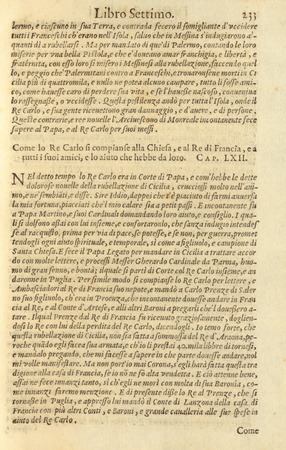 Libro Settimo. 233
lermo, e ciascuno in sua Terra, e contrada fecero il somigliante d'uccidere
tutti i Franceschi ch'erano nell'Isola, salvo che in Messina s'indugiarono d'
acquanti a rubellarsi. Ma per mandato di que' di Palermo, contando le loro
miserie per una bella Pistola, e che e' doveano amar franchigia, e libertà, e
fraternità, con esso loro si misero i Messinesi alla rubellazione, faccendo quel
lo, e peggio che' Palermitani contra a Franceschi, e trovaronsene morti in Ci
cilia più di quattromila, e nullo ne potea alcuno campare, tutto li fosse ami-
co, come havesse caro di perdere sua vita, e se l'havesse nascoso, convenia,
lo rassegnasse, o uccidesse. Questa pistilenza andò per tutta l'Isola, onde il
Re Carlo, e sua gente ricevettono gran dammaggio, d'avere, e di persone.
Queste contrarie, e ree novelle l'Arcivescovo di Morreale incontanente fece
sapere al Papa, e al Re Carlo per suoi messi.
Come lo Re Carlo si compianse alla Chiesa, e al Re di Francia, e a
tutti i suoi amici, e lo aiuto che hebbe da loro. CAP. LXII.
NEl detto tempo lo Re Carlo era in Corte di Papa, e com'hebbe le dette
dolorose novelle della rubellazione di Cicilia, crucciossi molto nell'ani-
mo, e ne' sembianti, e disse. Sire Iddio, dappoi che t'è piaciuto di farmi avversa
la mia fortuna, piacciati che'l mio calare sia a petit passi. E incontanente fu
a Papa Martino, e suoi Cardinali domandando loro aiuto, e consiglio. I qua-
li si dolfono assai con lui insieme, e confortarolo, che sanza indugio intendes
se al racquisto, prima per via di pace, se potesse, e se non, per guerra, promet
tendogli ogni aiuto spirituale, e temporale, sì come a figliuolo, e campione di
Santa Chiesa. E fece il Papa Legato per mandare in Cicilia a trattare accor
do con molte lettere, e processi Messer Gherardo Cardinale da Parma, huo-
mo di gran senno, e bontà; il quale si partì di Corte col Re Carlo insieme, e an
daronne in Puglia. Per simile modo si compianse lo Re Carlo per lettere, e
Ambasciadori al Re di Francia suo nipote, e mandò a Carlo Prenze di Saler
no suo figliuolo, ch'era in Proenza, che incontanente dovesse andare in Fran
cia al Re, e al Conte d'Artese, e alli altri Baroni a pregarli che'l dovessero a-
tare. Il qual Prenze dal Re di Francia fu ricevuto graziosamente, doglien-
dosi lo Re con lui della perdita del Re Carlo, dicendogli. Io temo forte, che
questa rubellazione di Cicilia, non sia fatta a sommossa del Re d'Araona, pe-
rochè quando egli facea sua armata, e ch'io li prestai 40. mila libbre di tornesi,
e mandalo pregando, che mi facesse a sapere in che parte dovesse andare, nol
mi volle manifestare. Ma non port'io mai Corona, s'egli havrà fatta questa tra
digione alla casa di Francia, se io nò ne fò alta vendetta. E ciò attenne bene,
assai ne fece innanzi tanto, sì ch'egli ne morì con molta di sua Baronia, co-
me innanzi faremo menzione. E di presente disse lo Re al Prenze, che si
tornasse in Puglia, e appresso di lui mandò il Conte di Lanzona della casa di
Francia con più altri Conti, e Baroni, e grande cavalleria alle sue spese in
aiuto del Re Carlo.
Come